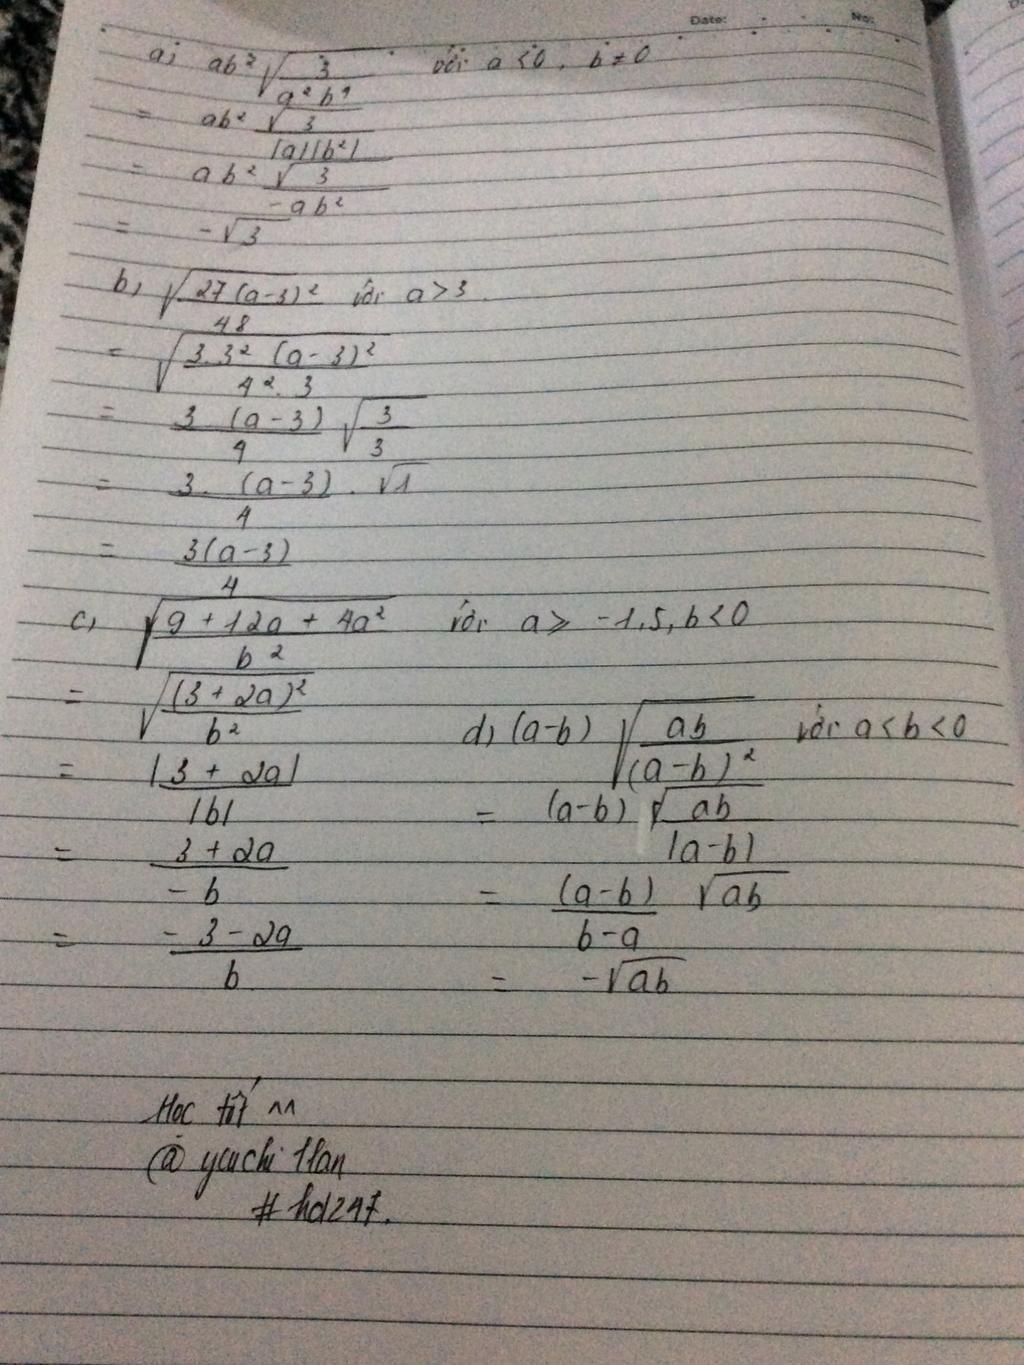 Date: No:
a) ab² √(3/(a²b⁴)) với a<0, b≠0
= ab² √3/(|a||b²|)
= ab² √3/(-ab²)
= -√3
b) √(27(a-3)²/48) với a>3
= √(3.3² (a-3)²/(4².3))
= 3 (a-3)/4 √(3/3)
= 3. (a-3)/4 . √1
= 3(a-3)/4
c) √((9+12a+4a²)/b²) với a ≥ -1,5, b<0
= √((3+2a)²/b²)
= |3+2a|/|b|
= (3+2a)/(-b)
= (-3-2a)/b
d) (a-b) √(ab/(a-b)²) với a<b<0
= (a-b) √ab/|a-b|
= (a-b)/(b-a) √ab
= -√ab
Học tốt ^^
# hd247.